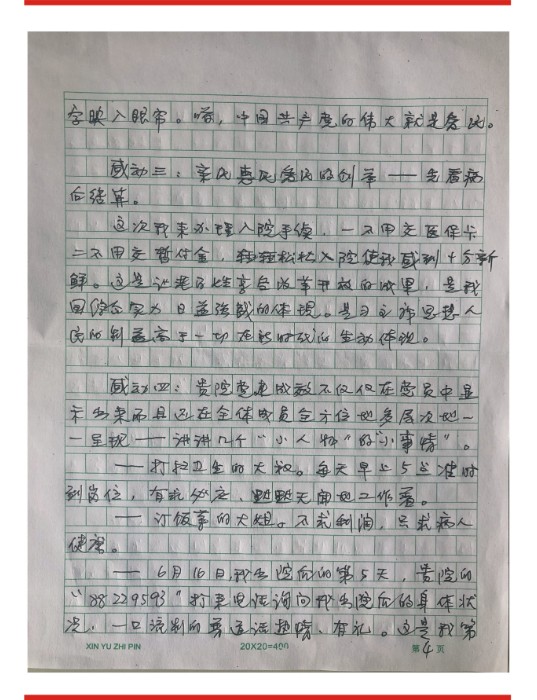 字映入眼帘。嗬，中国共产党的伟大就是务民。
感动三：亲民惠民务民的创举——先看病
后结算。
这次我来办理入院手续，一不用交医保卡
二不用交暂付金，轻轻松松入院使我感到十分新
鲜。这是让老百姓享受改革开放的成果，是我
国综合实力日益强盛的体现。是习主席思想人
民的利益高于一切在新时代的生动体现。
感动四：贵院党建成效不仅仅在党员中显
示出来而且已在全体成员全方位地多层次地一
一呈现——讲讲几个“小人物”的“小事情”。
——打扫卫生的大叔。每天早上5点准时
到岗位，有 默默无闻地工作着。
——订饭菜的大姐。不求利润，只求病人
健康。
——6月16日我出院后的第5天，贵院的
“88229593”打来电话询问我出院后的身体状
况，一口流利的普通话热情、有礼。这是我第
XIN YU ZHI PIN
20X20=400
第4页